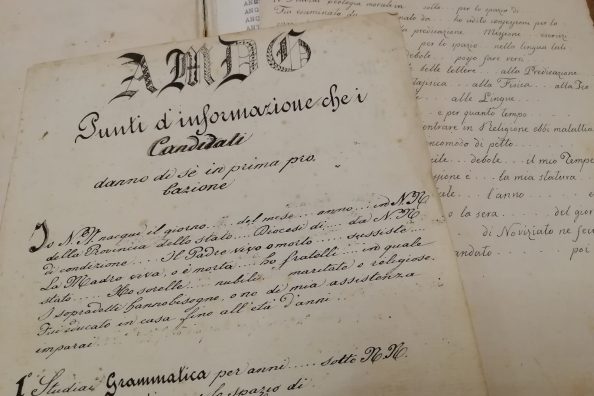 AMDG
Punti d'informazione che i
Candidati
danno di sè in prima pro
bazione
Io N. N. nacque il giorno..... del mese... anno.... in N.N.
della Provincia dello stato.... Diocesi di.... da N N.
di condizione..... Il Padre vivo o morto..... sussiste
La Madre viva, o è morta.... ho fratelli.... in quale
stato..... Ho sorelle.... nubili.... maritate o religiose.
I sopradetti hanno bisogno, o no di mia assistenza
Fui educato in casa fino all'età d'anni....
imparai....
1° Studiai Grammatica per anni.... sotto N.N.
lo spazio di
teologia morale in ... sotto... per lo spazio di
Fui esaminato da
ho udito confessioni per lo
predicazione. Missione
per lo spazio
nella lingua lati
debole... poije fare versi
belle lettere ... alla Predicazione
alla Fisica ... alla Teo
alle Lingue
e per quanto tempo
entrare in Religione ebbi malattia
incomodo di petto
debole ... il mio Tempe
è ... la mia statura
l'anno ... e
o la sera ... del gior
di Noviziato ne fui
andato ... poi